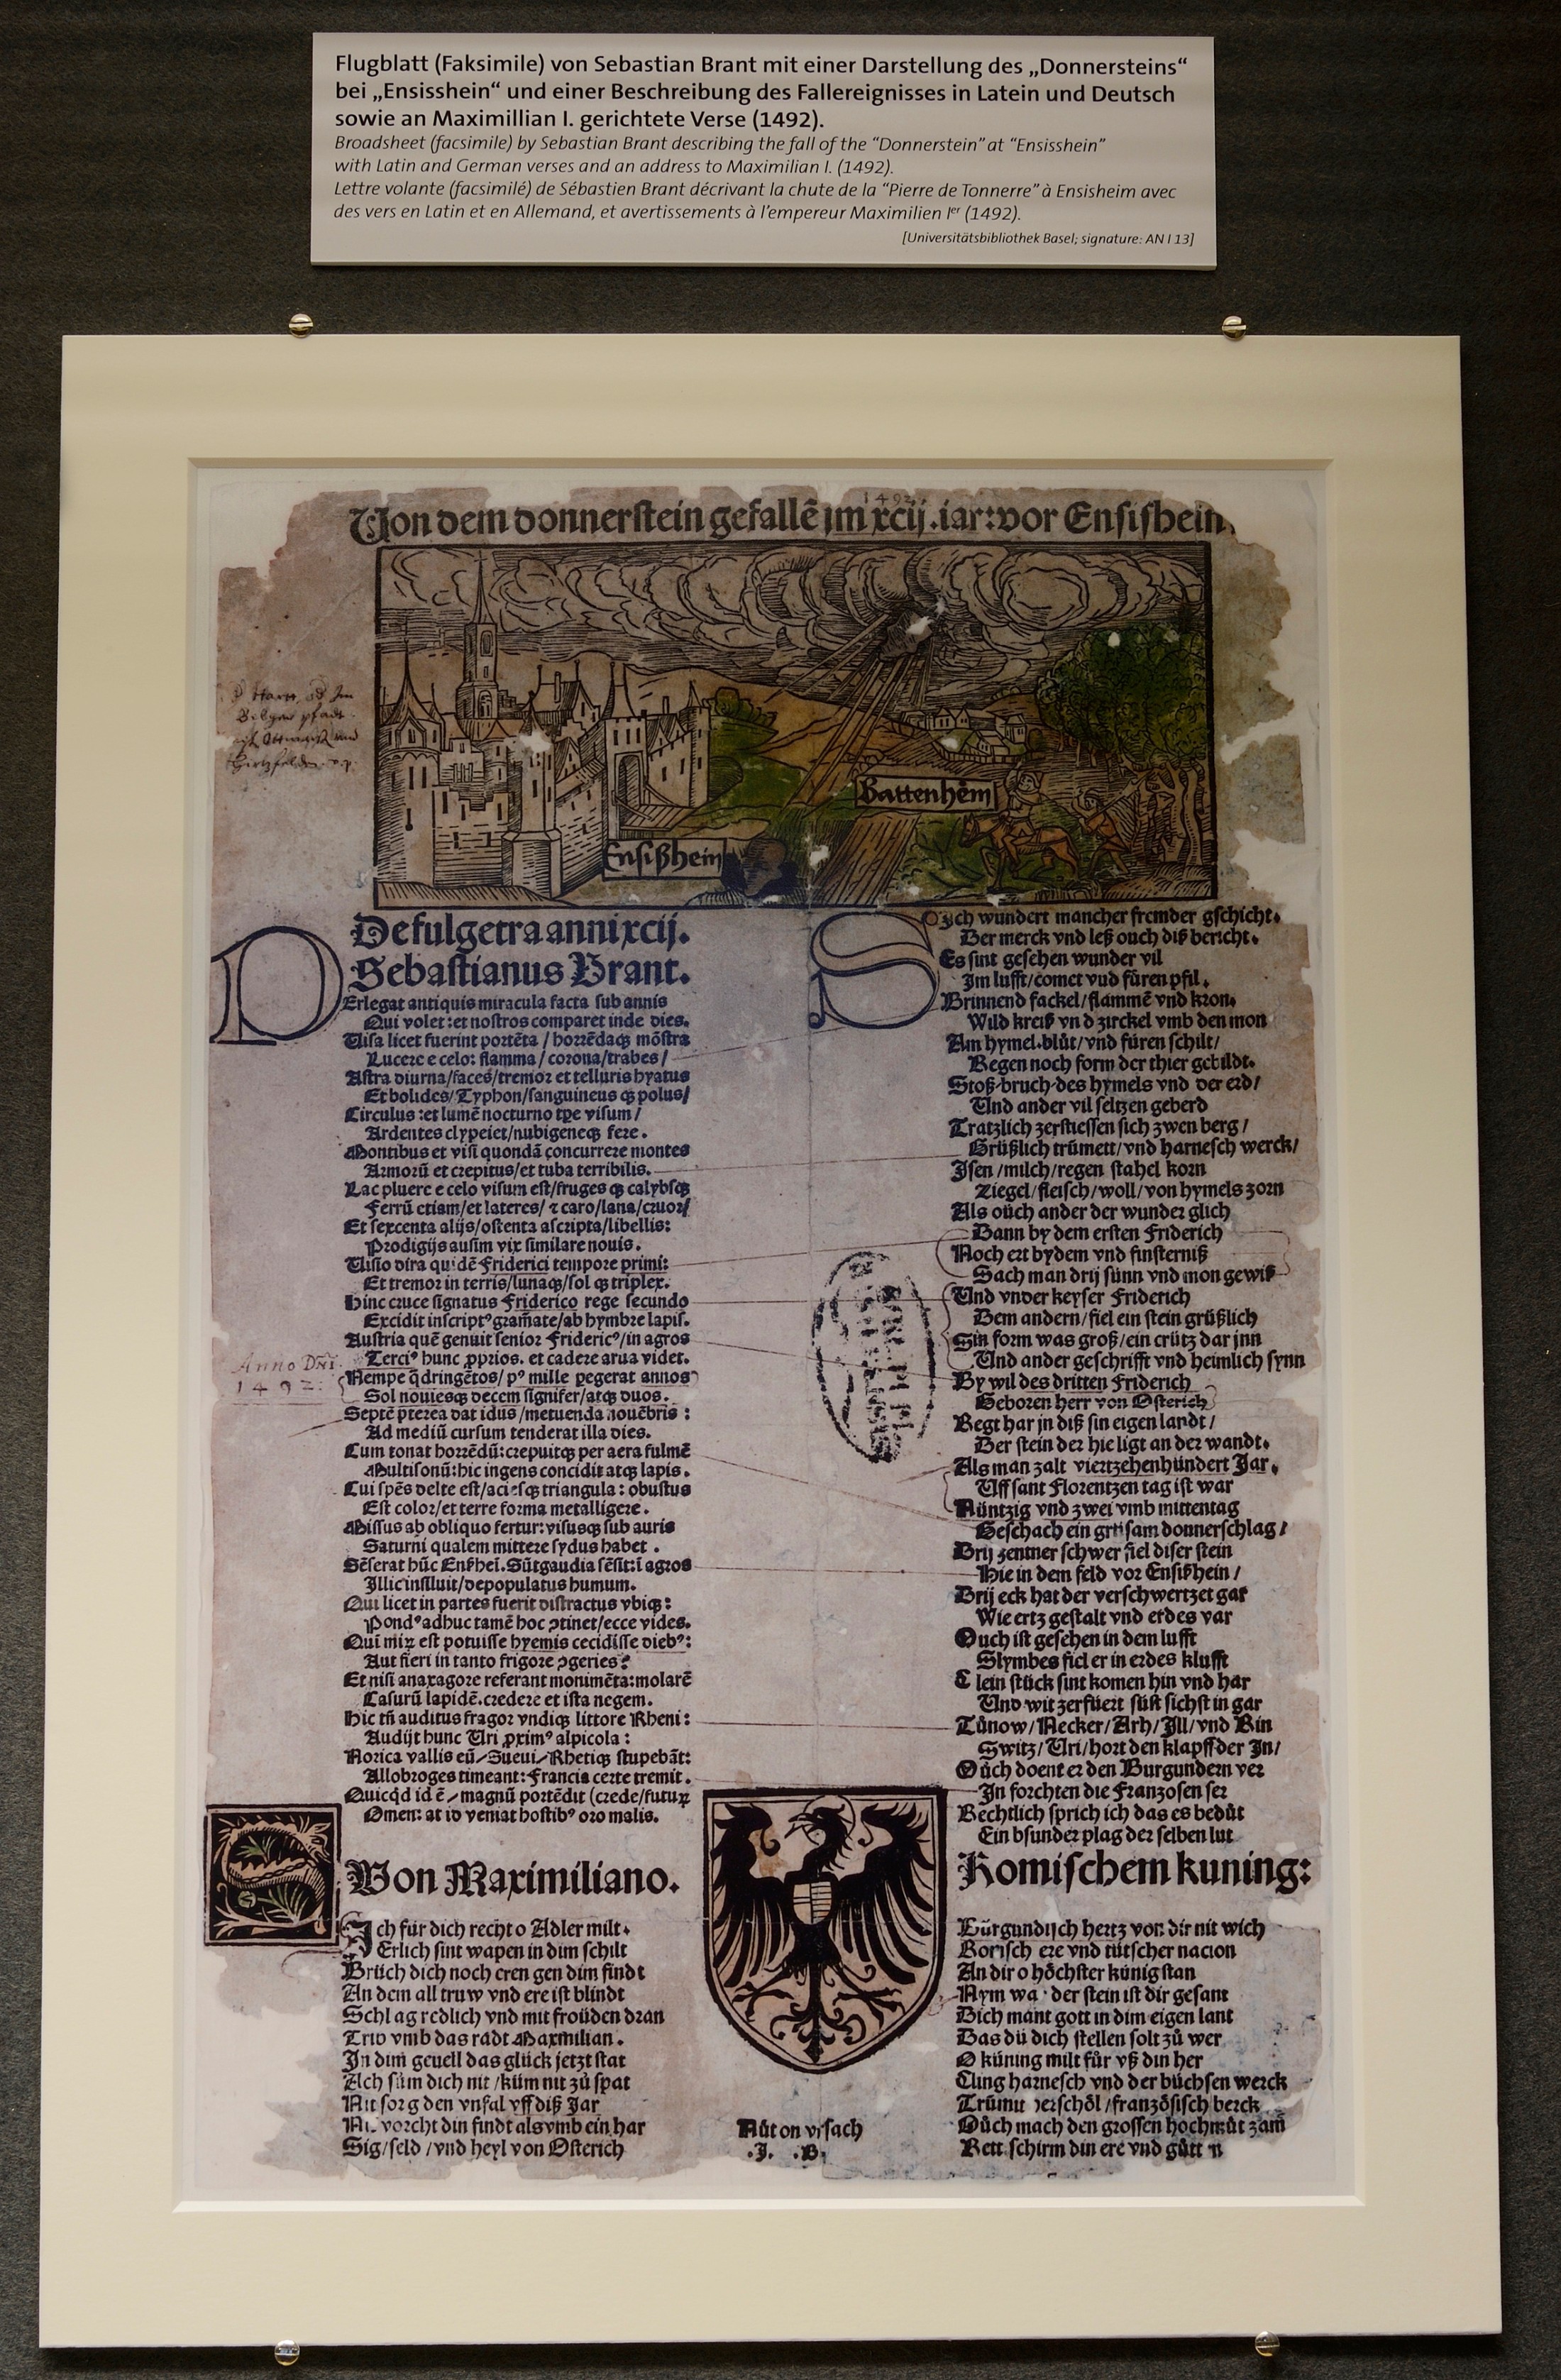 Flugblatt (Faksimile) von Sebastian Brant mit einer Darstellung des „Donnersteins“
bei „Ensisshein“ und einer Beschreibung des Fallereignisses in Latein und Deutsch
sowie an Maximillian I. gerichtete Verse (1492).
Broadsheet (facsimile) by Sebastian Brant describing the fall of the “Donnerstein” at “Ensisshein”
with Latin and German verses and an address to Maximilian I. (1492).
Lettre volante (facsimilé) de Sébastien Brant décrivant la chute de la “Pierre de Tonnerre” à Ensisheim avec
des vers en Latin et en Allemand, et avertissements à l’empereur Maximilien Iᵉʳ (1492).
[Universitätsbibliothek Basel; signature: AN I 13]
1492
Von dem donnerstein gefallē im xcij. iar: vor Ensishein
Battenhēm
Ensißhein
De fulgetra anni xcij.
Sebastianus Brant.
Perlegat antiquis miracula facta sub annis
Qui volet: et nostros comparet inde dies.
Visa licet fuerint portēta / horrēdaqꝫ mōstra
Lucere e celo: flamma / corona / trabes /
Astra diurna / faces / tremor et telluris hyatus
Et bolides / Typhon / sanguineus qꝫ polus /
Circulus: et lumē nocturno tꝑe visum /
Ardentes clypei et / nubigeneqꝫ fere.
Montibus et visi quondā concurrere montes
Armorū et crepitus / et tuba terribilis.
Lac pluere e celo visum est / fruges qꝫ calybsqꝫ
Ferrū etiam / et lateres / ⁊ caro / lana / cruor /
Et sexcenta alijs / ostenta ascripta / libellis:
Prodigijs ausim vix similare nouis.
Visio dira quidē Friderici tempore primi:
Et tremor in terris / lunaqꝫ / sol qꝫ triplex.
Hinc cruce signatus Friderico rege secundo
Excidit inscriptꝰ gram̄ate / ab hymbre lapis.
Austria quē genuit senior Fridericꝰ / in agros
Terciꝰ hunc ꝓprios. et cadere arua videt.
Anno Dn̄i
1492:
Nempe q̄dringētos / pꝰ mille ꝑegerat annos
Sol nouiesqꝫ decem signifer / atqꝫ duos.
Septē p̄terea dat idus / metuenda nouēbris:
Ad mediū cursum tenderat illa dies.
Cum tonat horrēdū: crepuitqꝫ per aera fulmē
Multisonū: hic ingens concidit atqꝫ lapis.
Cui spēs delte est / aciesqꝫ triangula: obustus
Est color / et terre forma metalligere.
Missus ab obliquo fertur: visusqꝫ sub auris
Saturni qualem mittere sydus habet.
Sēserat hūc Enßhei. Sūtgaudia sēsit: ī agros
Illic insiluit / depopulatus humum.
Qui licet in partes fuerit distractus vbiqꝫ:
Pondꝰ adhuc tamē hoc ↄtinet / ecce vides.
Quī mirꝝ est potuisse hyemis cecidisse diebꝰ:
Aut fieri in tanto frigore ↄgeries?
Et nisi anaxagore referant monimēta: molarē
Casurū lapidē. credere et ista negem.
Hic tn̄ auditus fragor vndiqꝫ littore Rheni:
Audijt hunc Uri ꝓximꝰ alpicola:
Norica vallis eū / Sueui / Rhetiqꝫ stupebāt:
Allobroges timeant: Francia certe tremit.
Quicqd id ē / magnū portēdit (crede / futuꝝ
Omen: at id veniat hostibꝰ oro malis.
Sich wundert mancher fremder gschicht.
Der merck vnd leß ouch diß bericht.
Es sint gesehen wunder vil
Im lufft / comet vnd füren pfil.
Brinnend fackel / flammē vnd kron.
Wild kreiß vnd zirckel vmb den mon
Am hymel. blůt / vnd füren schilt /
Regen noch form der thier gebildt.
Stoß bruch des hymels vnd der erd /
Und ander vil seltzen geberd
Tratzlich zerstiessen sich zwen berg /
Grüßlich trümett / vnd harnesch werck /
Isen / milch / regen stahel korn
Ziegel / fleisch / woll / von hymels zorn
Als oüch ander der wunder glich
Dann by dem ersten Friderich
Noch ert bydem vnd finsterniß
Sach man drij sünn vnd mon gewiß
Und vnder keyser Friderich
Dem andern / fiel ein stein grüßlich
Sin form was groß / ein crütz dar jnn
Und ander geschrifft vnd heimlich synn
By wil des dritten Friderich
Geboren herr von Österich
Regt har jn diß sin eigen landt /
Der stein der hie ligt an der wandt.
Als man zalt viertzehenhündert Jar.
Uff sant Florentzen tag ist war
Nüntzig vnd zwei vmb mittentag
Geschach ein grüsam donnerschlag /
Drij zentner schwer fiel diser stein
Hie in dem feld vor Ensißhein /
Drij eck hat der verschwertzet gar
Wie ertz gestalt vnd erdes var
Ouch ist gesehen in dem lufft
Slymbes fiel er in erdes klufft
Clein stück sint komen hin vnd har
Und wit zerfüert süst sichst in gar
Tůnow / Necker / Arh / Ill / vnd Rin
Switz / Uri / hort den klapff der In /
Oůch doent er den Burgundern ver
In forchten die Franzosen ser
Rechtlich sprich ich das es bedüt
Ein bsunder plag der selben lut
Von Maximiliano.
Romischem kuning:
Sich für dich recht o Adler milt.
Erlich sint wapen in dim schilt
Brüch dich noch eren gen dim findt
An dem all truw vnd ere ist blindt
Schlag redlich vnd mit froüden dran
Trib vmb das radt Maxmilian.
In dim geuell das glück jetzt stat
Ach süm dich nit / küm nit zů spat
Nit sorg den vnfal vff diß Jar
Nit vorcht din findt als vmb ein har
Sig / seld / vnd heyl von Österich
Burgundisch hertz von dir nit wich
Romisch ere vnd tütscher nacion
An dir o höchster künig stan
Nym war der stein ist dir gesant
Dich mant gott in dim eigen lant
Das dü dich stellen solt zů wer
O küning milt für vß din her
Cling harnesch vnd der büchsen werck
Trümt herschöl / französisch berck
Oüch mach den grossen hochmüt zam
Rett schirm din ere vnd gütt n
Nüt on vrsach
.J. .B.